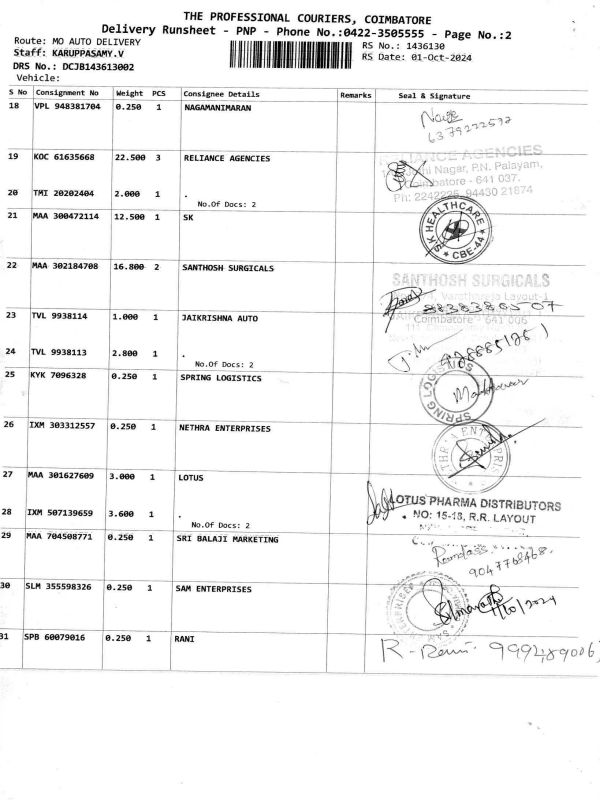 THE PROFESSIONAL COURIERS, COIMBATORE
Delivery Runsheet - PNP - Phone No.:0422-3505555 - Page No.:2
Route: MO AUTO DELIVERY
RS No.: 1436130
Staff: KARUPPASAMY.V
RS Date: 01-Oct-2024
DRS No.: DCJB143613002
Vehicle:
S No Consignment No Weight PCS Consignee Details Remarks Seal & Signature
18 VPL 948381704 0.250 1 NAGAMANIMARAN
6379222592
19 KOC 61635668 22.500 3 RELIANCE AGENCIES
RELIANCE AGENCIES
Nagar, P.N. Palayam,
Coimbatore - 641 037.
Ph: 2242225, 94430 21874
20 TMI 20202404 2.000 1 .
No.Of Docs: 2
21 MAA 300472114 12.500 1 SK
SK HEALTHCARE
CBE-44
22 MAA 302184708 16.800 2 SANTHOSH SURGICALS
SANTHOSH SURGICALS
Layout-1
8838386507
Coimbatore - 641 006
23 TVL 9938114 1.000 1 JAIKRISHNA AUTO
24 TVL 9938113 2.800 1 .
No.Of Docs: 2
25 KYK 7096328 0.250 1 SPRING LOGISTICS
SPRING LOGISTICS
26 IXM 303312557 0.250 1 NETHRA ENTERPRISES
27 MAA 301627609 3.000 1 LOTUS
LOTUS PHARMA DISTRIBUTORS
NO: 15-18, R.R. LAYOUT
28 IXM 507139659 3.600 1 .
No.Of Docs: 2
29 MAA 704508771 0.250 1 SRI BALAJI MARKETING
9047768468
30 SLM 355598326 0.250 1 SAM ENTERPRISES
31 SPB 60079016 0.250 1 RANI